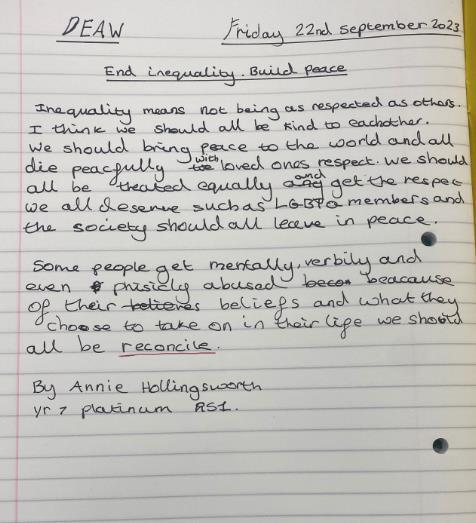 DEAW Friday 22nd September 2023
End inequality. Build peace
Inequality means not being as respected as others.
I think we should all be kind to eachother.
We should bring peace to the world and all
die peacfully with loved ones respect. We should
all be treated equally and get the respec
we all deserve such as LGBTQ members and
the society should all leave in peace.
Some people get mentally, verbily and
even phisicly abused beacause
of their believes beliefs and what they
choose to take on in their life we should
all be reconcile.
By Annie Hollingsworth
yr 7 platinum RS1.